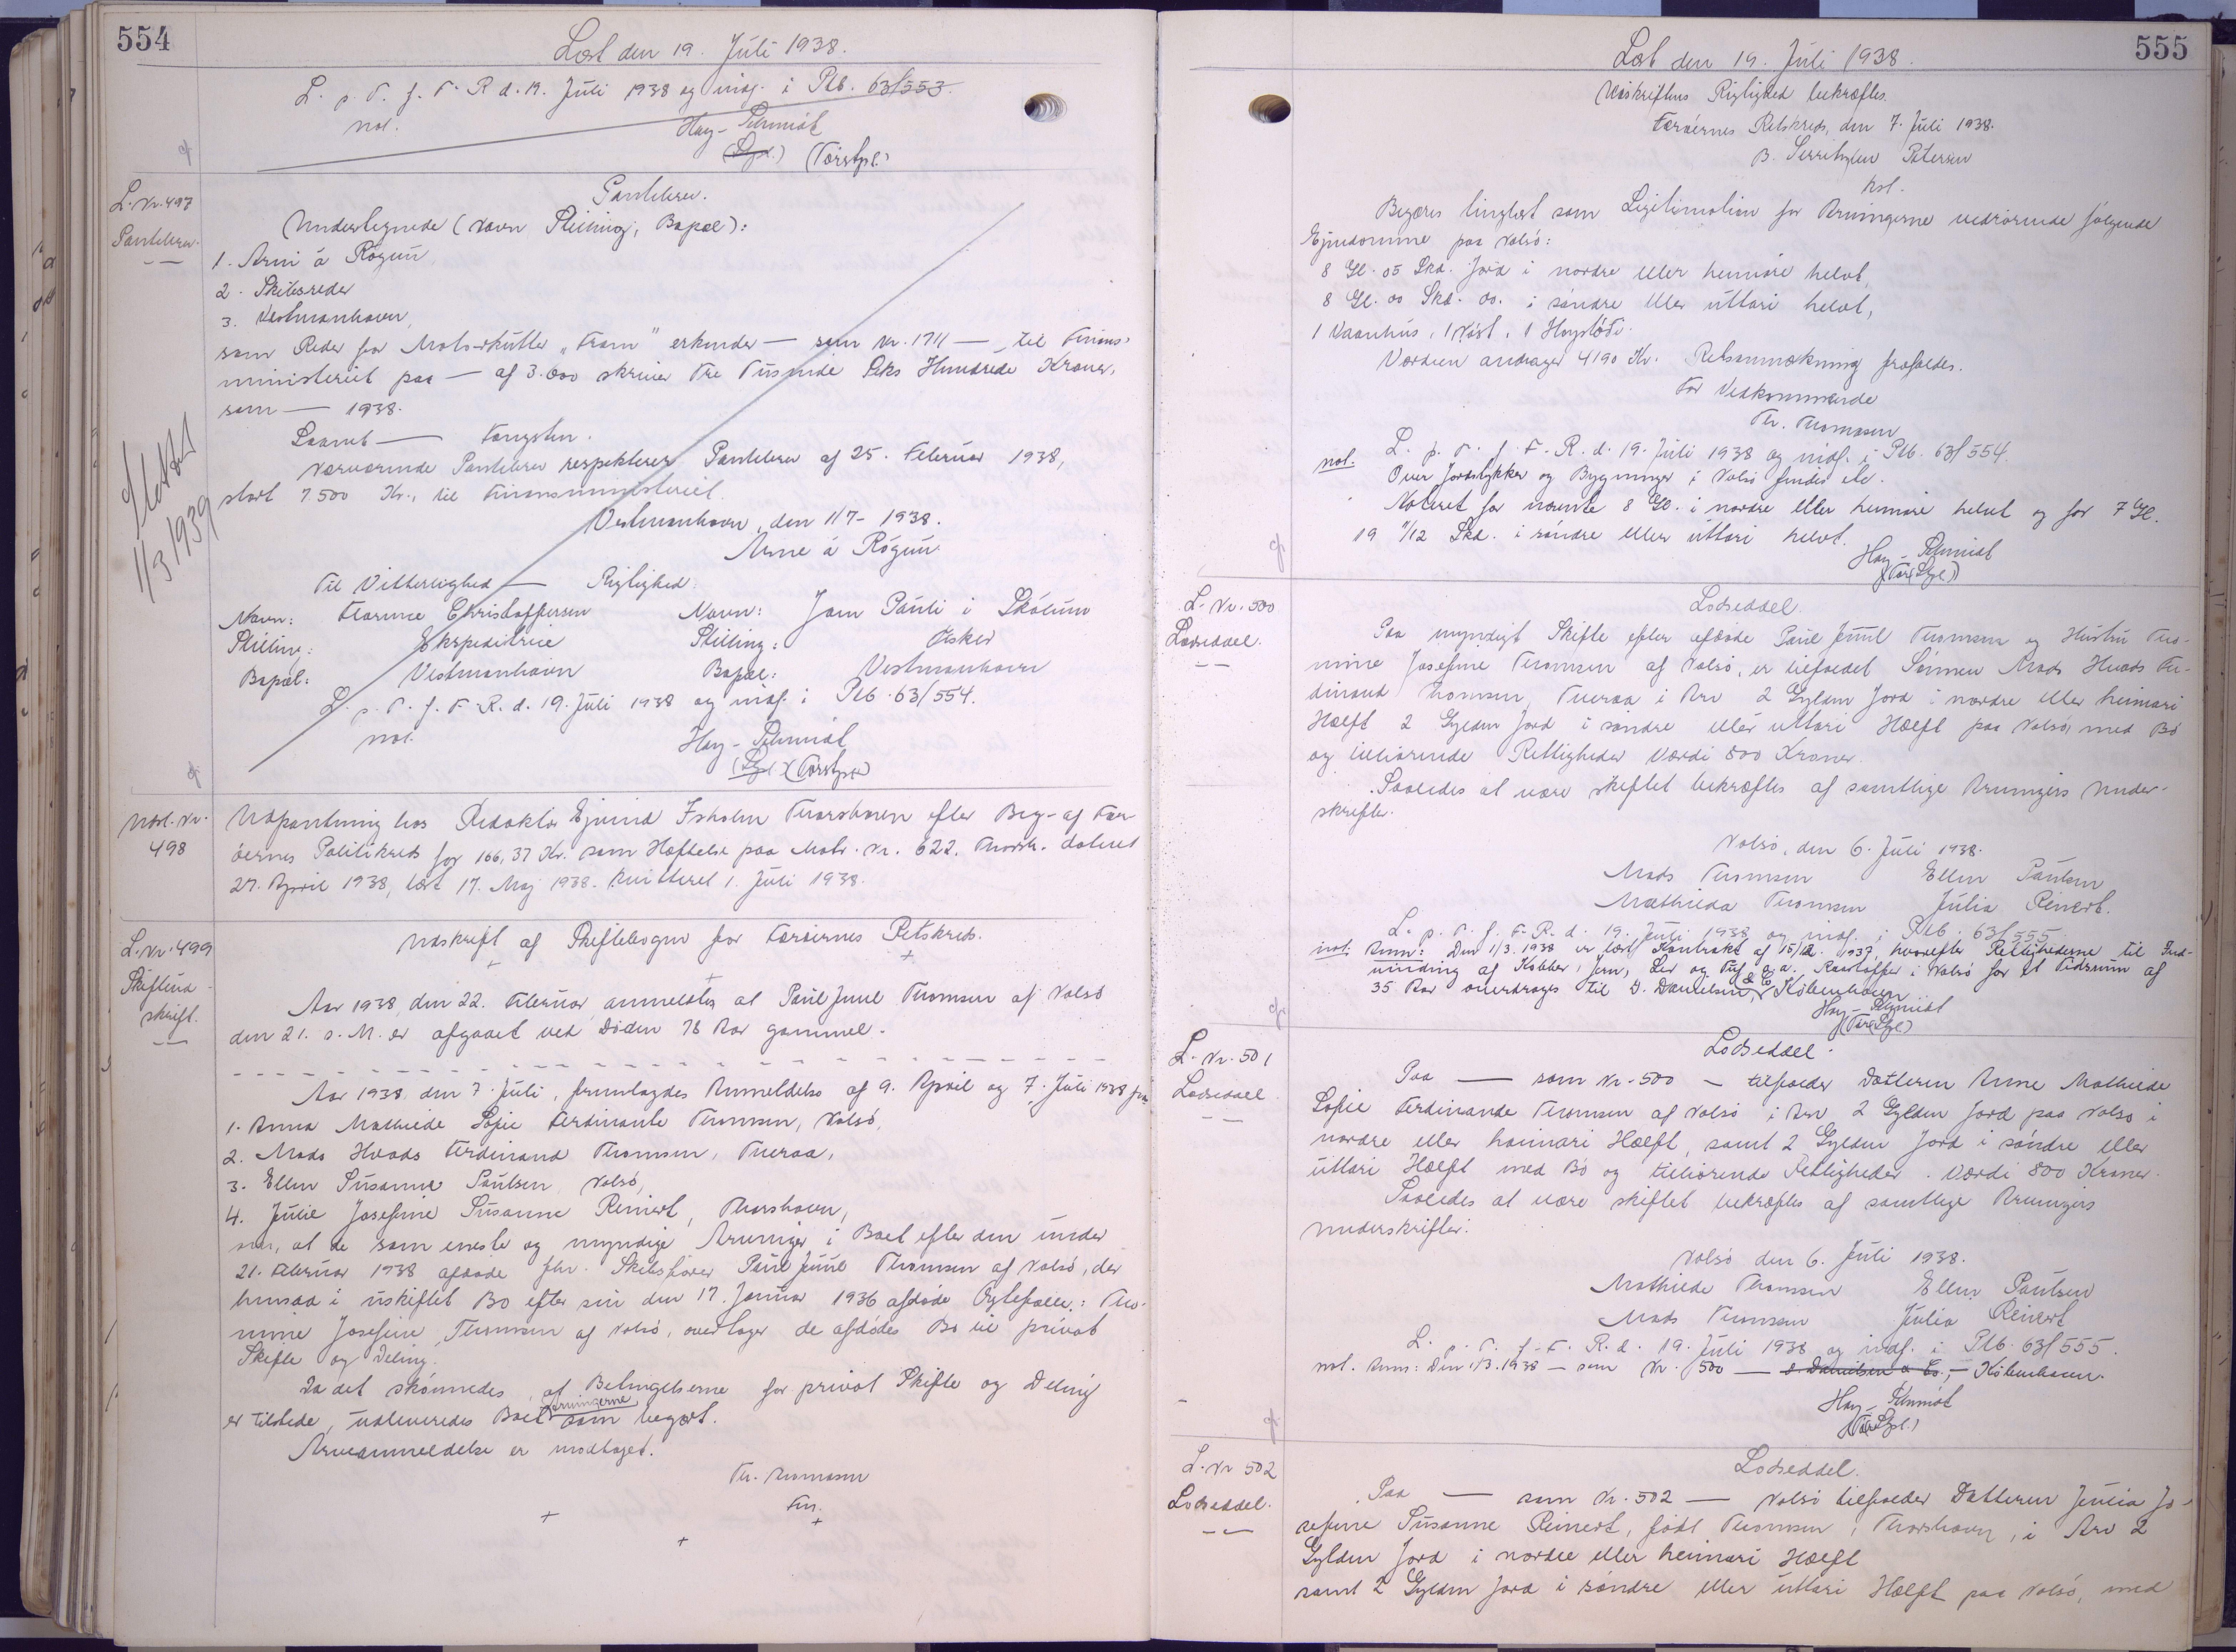 554
Læst den 19. Juli 1938.
L. p. T. f. F. R. d. 19. Juli 1938 og indf. i Ptb. 63/553.
not.
Hay-Schmidt
(Vørstpl.)
L. Nr. 497
Pantebrev.
Pantebrev.
Undertegnede (Navn, Stilling, Bopæl):
1. Arni á Rógvu,
2. Skibsreder
3. Vestmanhavn,
som Reder for Motorskütter "Fram" erkender — som Nr. 1711 — til Finans-
ministeriet paa — af 3.600 skriver Tre Tusinde Seks Hundrede Kroner,
som — 1938.
Laanet — Fangsten.
Nærværende Pantebrev respekterer Pantebrev af 25. Februar 1938,
stort 7.500 Kr., til Finansministeriet.
Vestmanhavn, den 1/7-1938.
Arne á Rógvu
Til Vitterlighed — Rigtighed:
Navn: Christoffersen Navn: Joen Pauli i Skálum
Stilling: Ekspeditrice Stilling: Fisker
Bopæl: Vestmanhavn Bopæl: Vestmanhavn
L. p. T. f. F. R. d. 19. Juli 1938 og indf. i Ptb. 63/554.
not.
Hay-Schmidt
Slettet
1/3 1939
Not. Nr.
498
Udpantning hos Redaktør Ejvind Isholm Thorshavn efter Beg. af Fær-
øernes Politikreds for 166,37 Kr. som Hæftelse paa Matr. Nr. 622, Thorsh. dateret
27. April 1938, læst 17. Maj 1938. Kvitteret 1. Juli 1938.
L. Nr. 499
Skifteud-
skrift.
Udskrift af Skiftebogen for Færøernes Retskreds.
Aar 1938, den 22. Februar, anmeldtes at Paul Juul Thomsen af Nolsø
den 21. s. M. er afgaaet ved Døden 78 Aar gammel.
Aar 1938, den 7. Juli, fremlagdes Anmeldelse af 9. April og 7. Juli 1938 fra
1. Anna Mathilde Sofie Ferdinante Thomsen, Nolsø,
2. Mads Hvads Ferdinand Thomsen, Tveraa,
3. Ellen Susanne Paulsen, Nolsø,
4. Julie Josefine Susanne Reinert, Thorshavn,
om, at de som eneste og myndige Arvinger i Boet efter den under
21. Februar 1938 afdøde fhv. Skibsfører Paul Juul Thomsen af Nolsø, der
hensad i uskiftet Bo efter sin den 17. Januar 1936 afdøde Ægtefælle: Tho-
mine Josefine Thomsen af Nolsø, overtager de afdødes Bo til privat
Skifte og Deling.
Da det skønnedes, at Betingelserne for privat Skifte og Deling
er tilstede, udleveredes Boet Arvingerne som begært.
Arveanmeldelse er modtaget.
Th. Thomsen
Fm.
555
Læst den 19. Juli 1938.
Udskriftens Rigtighed bekræftes.
Færøernes Retskreds, den 7. Juli 1938.
B. Petersen
kst.
Begæres tinglæst som Legitimation for Arvingerne vedrørende følgende
Ejendomme paa Nolsø:
8 Gl. 05 Skd. Jord i nordre eller heimare helvt,
8 Gl. 00 Skd. do. i søndre eller uttari helvt,
1 Vaanhus, 1 Nøst, 1 Hoystøði.
Værdien andrager 4190 Kr. Retsanmærkning frafaldes.
For Vedkommende
Th. Thomsen
L. p. T. f. F. R. d. 19. Juli 1938 og indf. i Ptb. 63/554.
not.
Over Jordstykker og Bygninger i Nolsø findes ele.
Noteret for nævnte 8 Gl. i nordre eller heimare helvt og for 7 Gl.
19 11/12 Skd. i søndre eller uttari helvt.
Hay-Schmidt
L. Nr. 500
Lodseddel.
Lodseddel.
Paa myndigt Skifte efter afdøde Paul Juul Thomsen og Hustru Tho-
mine Josefine Thomsen af Nolsø, er tilfaldet Sønnen Mads Hvads Fer-
dinand Thomsen, Tveraa i Arv 2 Gylden Jord i nordre eller heimari
Hælft 2 Gylden Jord i søndre eller uttari Hælft paa Nolsø, med Bø
og tilhørende Rettigheder Værdi 800 Kroner.
Saaledes at være skiftet bekræftes af samtlige Arvingers Under-
skrifter.
Nolsø, den 6. Juli 1938.
Mads Thomsen Ellen Paulsen
Mathilda Thomsen Julia Reinert.
L. p. T. f. F. R. d. 19. Juli 1938 og indf. i Ptb. 63/555.
not. Anm: Den 1/3. 1938 er læst Kontrakt af 15/12. 1937, hvorefter Rettighederne til Ind-
vinding af Kobber, Jern, Ler og Tuf o. a. Raastoffer i Nolsø for et Tidsrum af
35 Aar overdrages til D. Danielsen & Co, Københaven
Hay-Schmidt
L. Nr. 501
Lodseddel.
Lodseddel.
Paa — som Nr. 500 — tilfalder Datteren Anne Mathilde
Sofie Ferdinande Thomsen af Nolsø i Arv 2 Gylden Jord paa Nolsø i
nordre eller haimari Hælft, samt 2 Gylden Jord i søndre eller
uttari Hælft med Bø og tilhørende Rettigheder. Værdi 800 Kroner.
Saaledes at være skiftet bekræftes af samtlige Arvingers
Underskrifter:
Nolsø den 6. Juli 1938.
Mathilde Thomsen Ellen Paulsen
Mads Thomsen Julia Reinert
L. p. T. f. F. R. d. 19. Juli 1938 og indf. i Ptb. 63/555.
not. Anm: Den 1/3. 1938 — som Nr. 500 — D. Danielsen & Co., — Københaven.
Hay-Schmidt
L. Nr 502
Lodseddel.
Lodseddel.
Paa — som Nr. 502 — Nolsø tilfalder Datteren Julia Jo-
sefine Susanne Reinert, født Thomsen, Thorshavn, i Arv 2
Gylden Jord i nordre eller heimari Hælft
samt 2 Gylden Jord i søndre eller uttari Hælft paa Nolsø, med